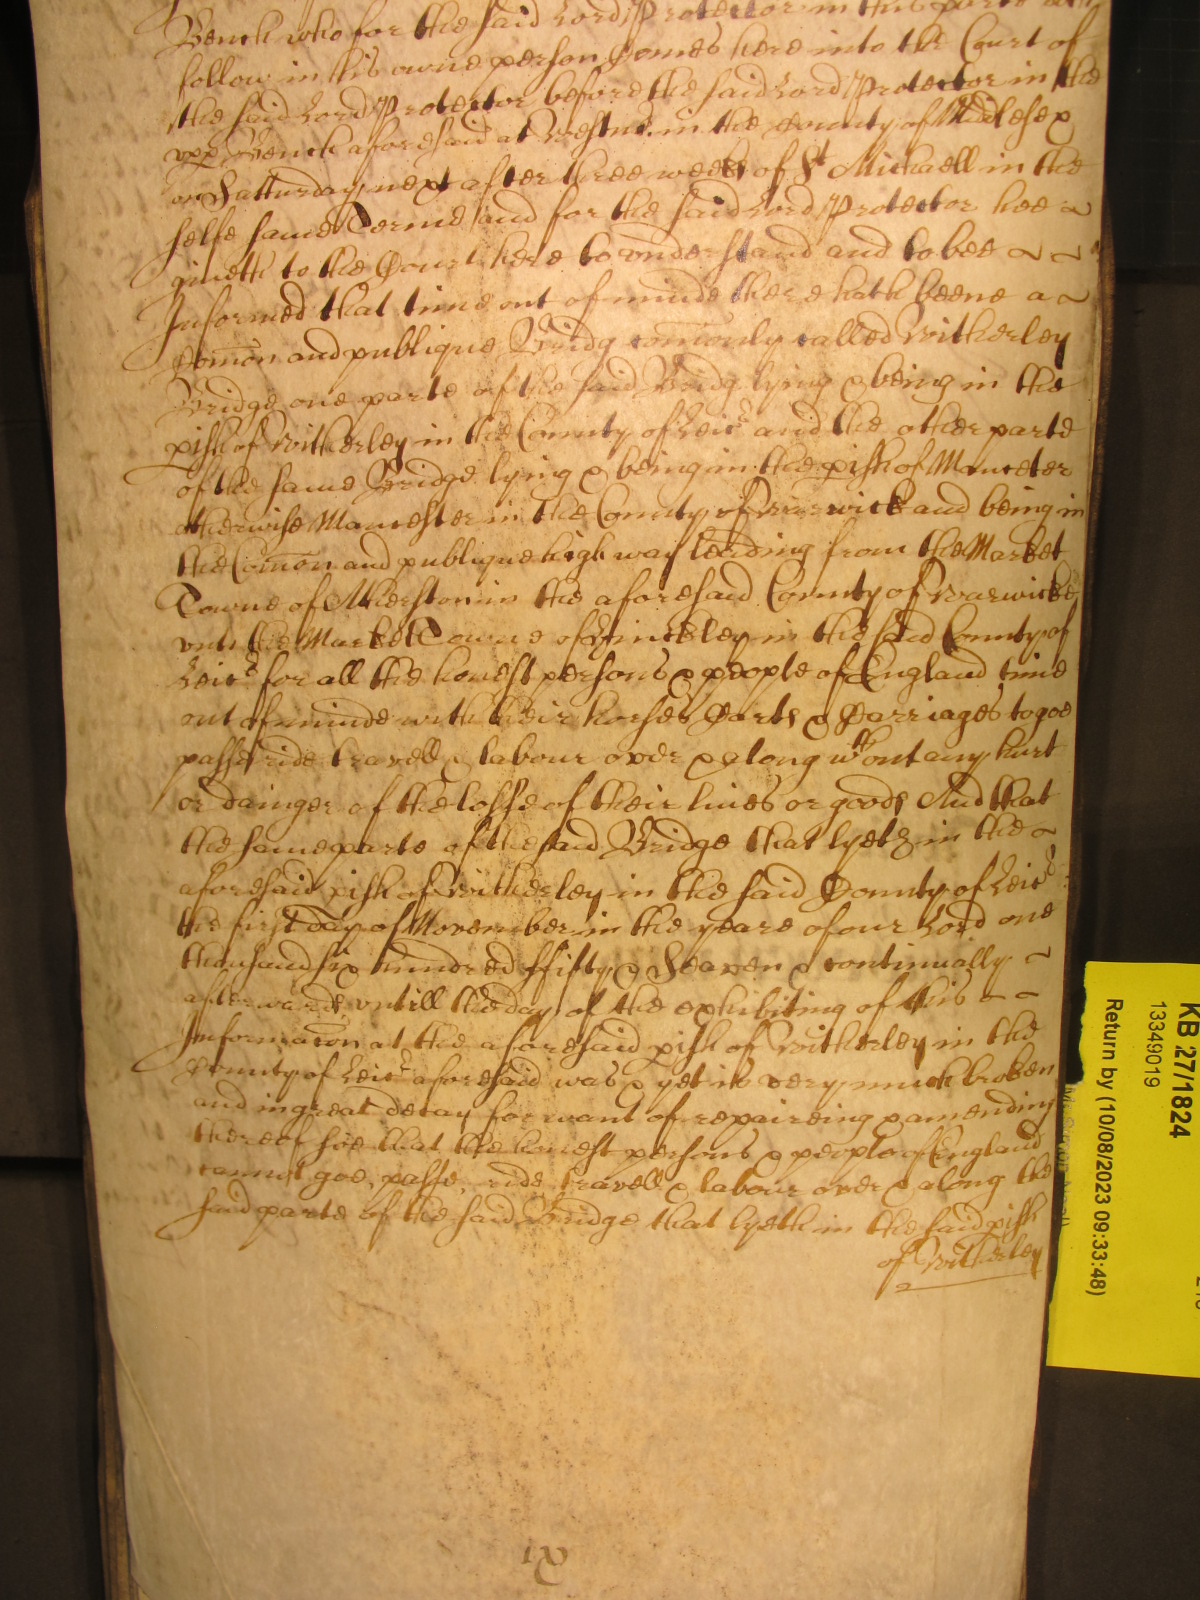 Bench who for the said Lord Protector in this parte doth
follow in his owne person Comes here into the Court of
the said Lord Protector before the said Lord Protector in the
vpp Bench aforesaid at Westm in the County of Middlesex
on Satturday next after three weeks of St Michaell in the
selfe same Terme and for the said Lord Protector hee
giueth to the Court here to vnderstand and to bee
Informed that time out of minde there hath beene a
Comon and publique Bridg comonly called Witherley
Bridge one parte of the said Bridg lying & being in the
pish of Witherley in the County of Leicr and the other parte
of the same Bridge lying & being in the pish of Manceter
otherwise Mancester in the County of Warwick and being in
the Comon and publique high way leading from the Market
Towne of Atherston in the aforesaid County of Warwicke
vnto the Market Towne of Hinckley in the said County of
Leicr for all the honest persons & people of England time
out of minde with their horses Carts & Carriages to goe
passe ride travell & labour over & along wthout any hurt
or dainger of the losse of their liues or goods And that
the same parte of the said Bridge that lyeth in the
aforesaid pish of Witherley in the said County of Leicr
the first day of November in the yeare of our Lord one
thousand six hundred ffifty & Seaven & continually
afterwards vntill the day of the exhibiting of this
Informacon at the aforesaid pish of Witherley in the
County of Leicr aforesaid was & yet is very much broken
and in great decay for want of repaireing & amending
thereof soe that the honest persons & people of England
cannot goe, passe, ride travell & labour over & along the
said parte of the said Bridge that lyeth in the said pish
of Witherley
IX
KB 27/1824
13349019
Return by (10/08/2023 09:33:48)